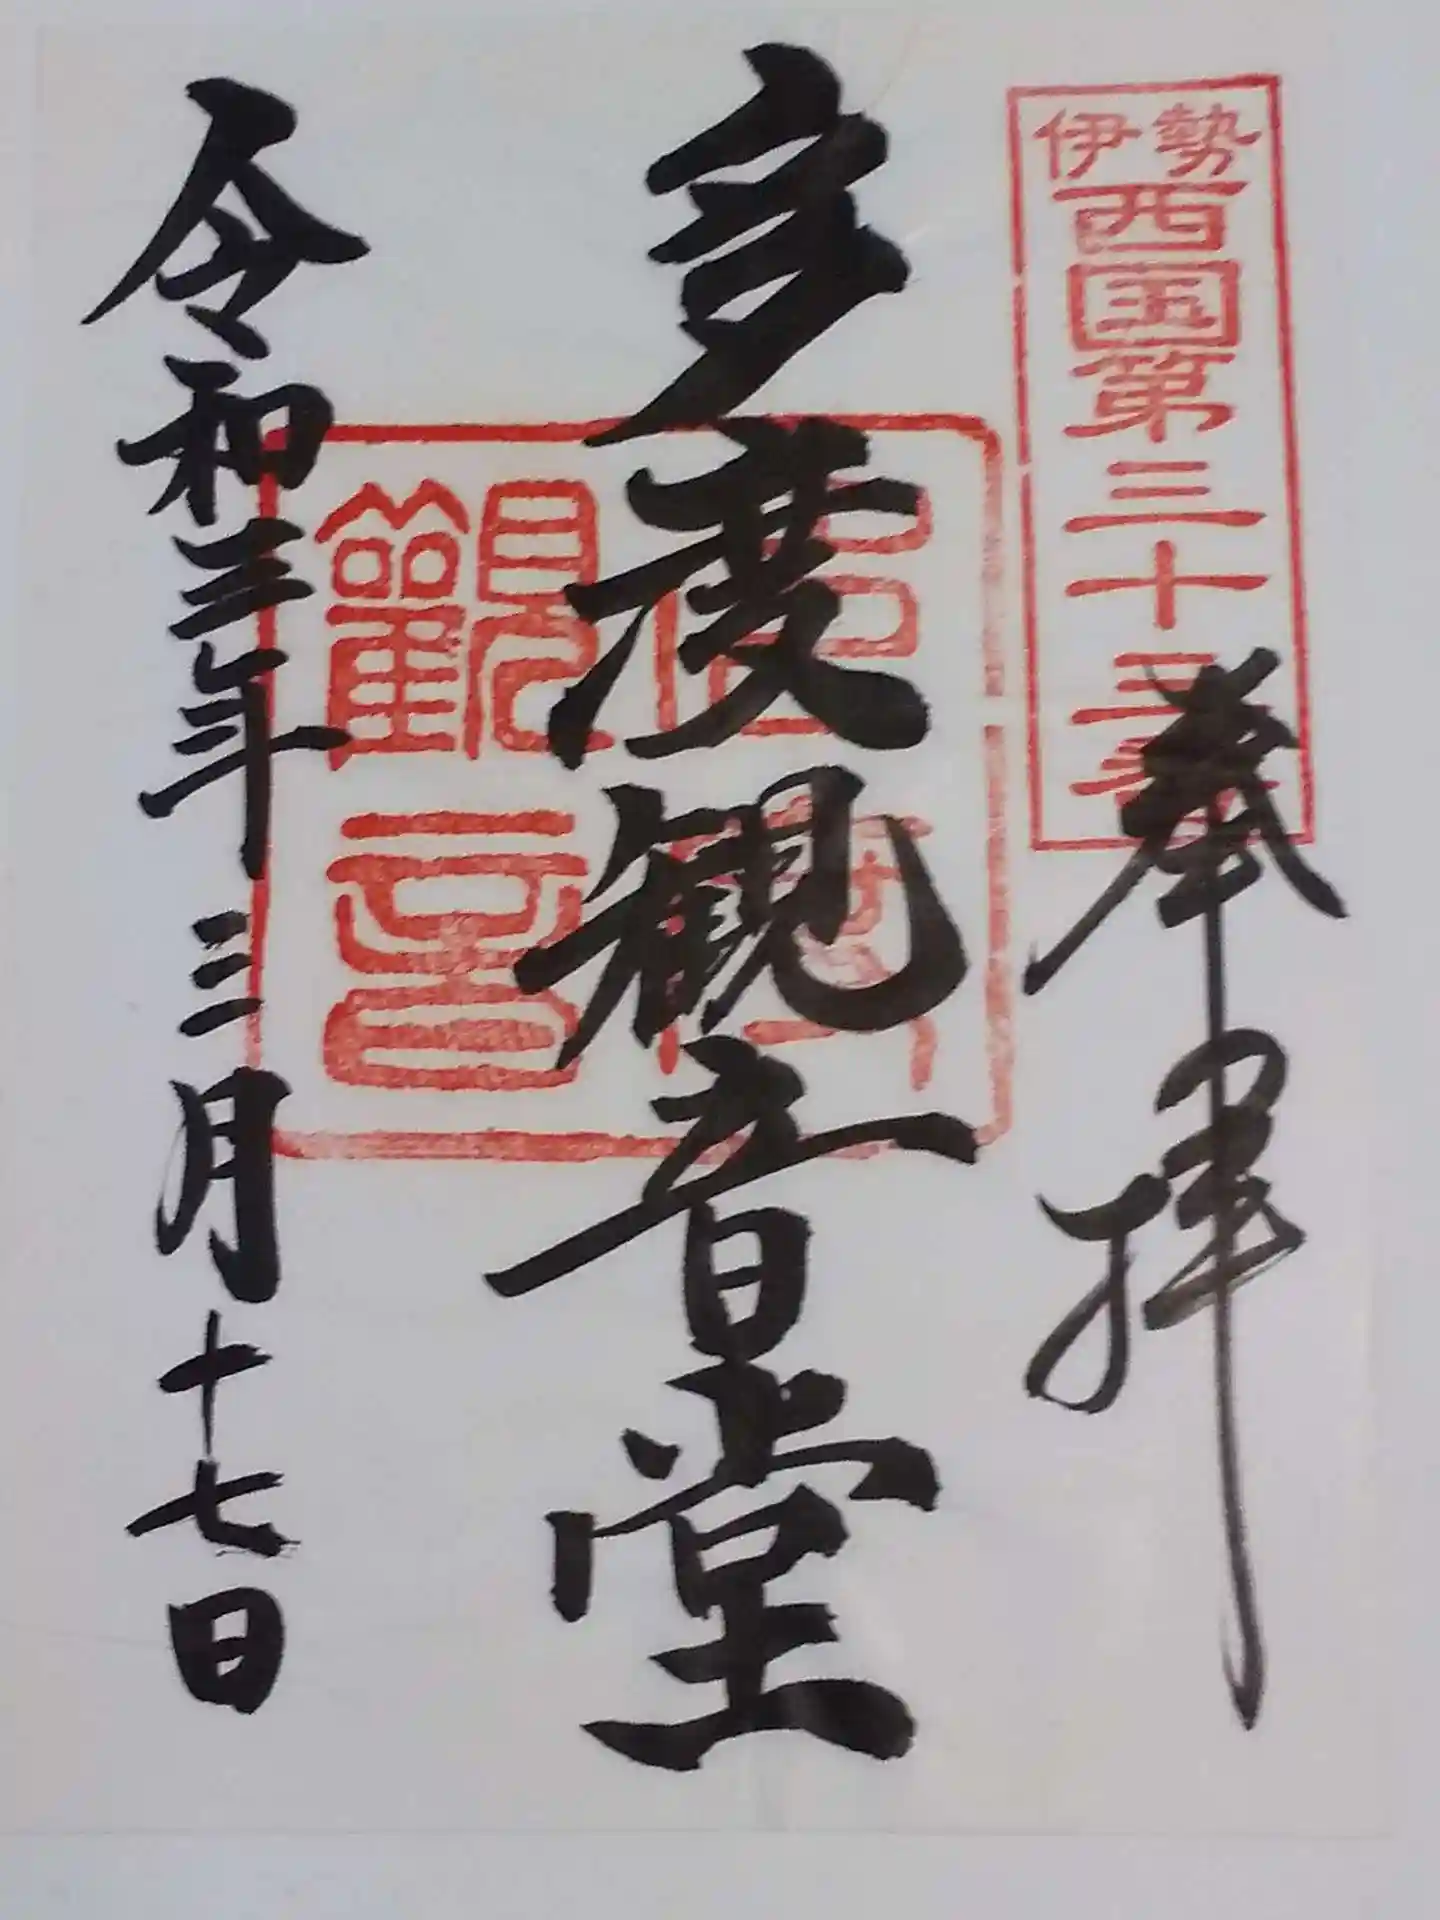 伊勢
西国第三十三番
奉拝
多度観音堂
観音
令和三年三月十七日